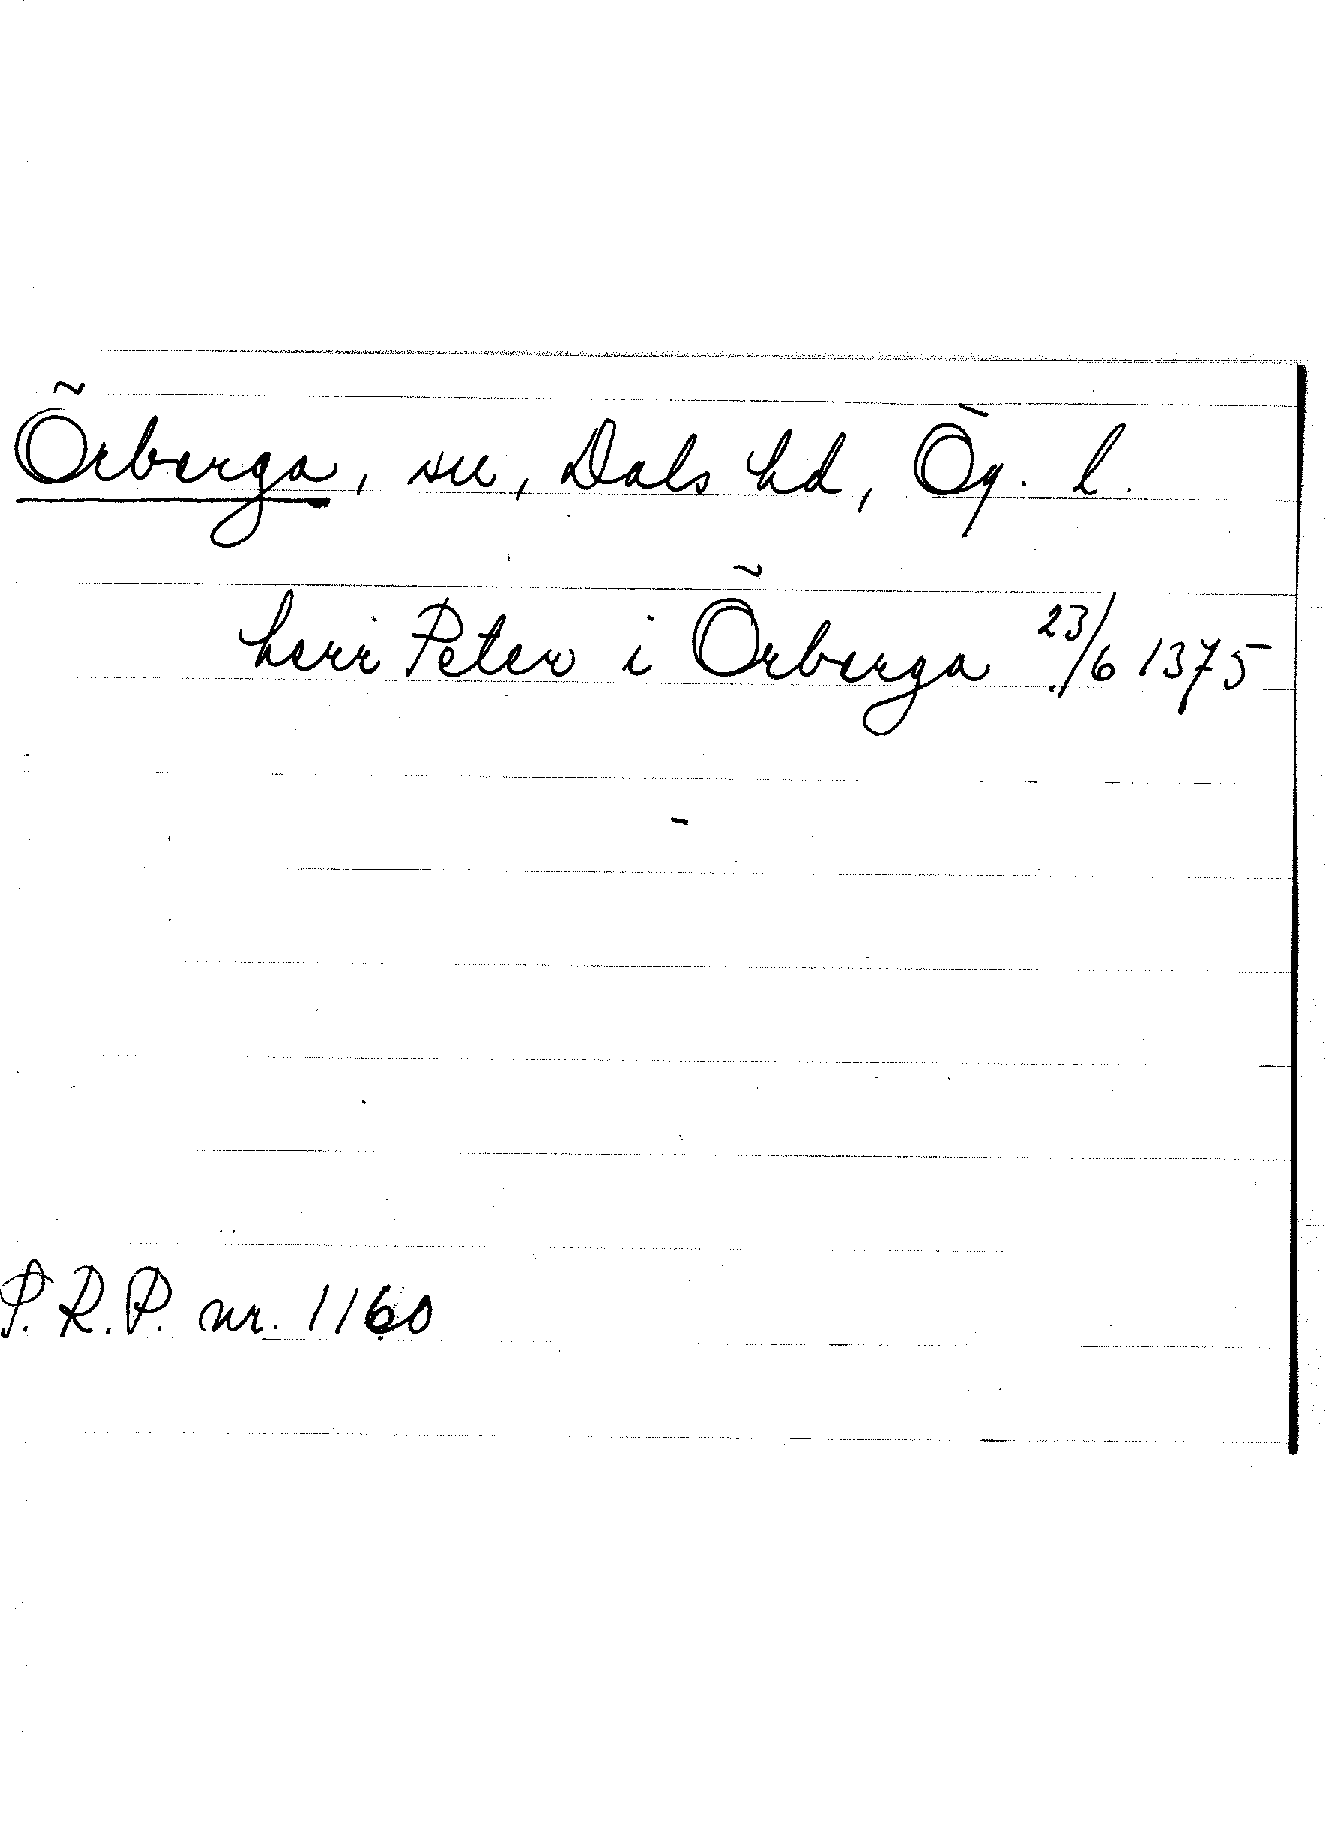 Örberga, sn, Dals hd, Ög. l.
herr Peter i Örberga 23/6 1375
P.R.P. nr. 1160